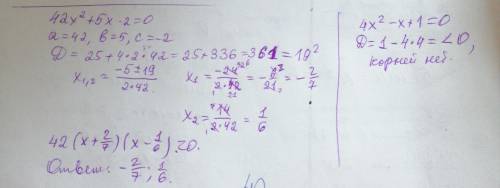 42x²+5x-2=0
a=42, b=5, c=-2
D=25+4·2·42=25+336=361=19²
x₁,₂=(-5±19)/(2·42) x₁=-24/(2·42)=-6/21=-2/7
x₂=14/(2·42)=1/6
42(x+2/7)(x-1/6)=0.
Ответ: -2/7; 1/6.
4x²-x+1=0
D=1-4·4=<0,
корней нет.